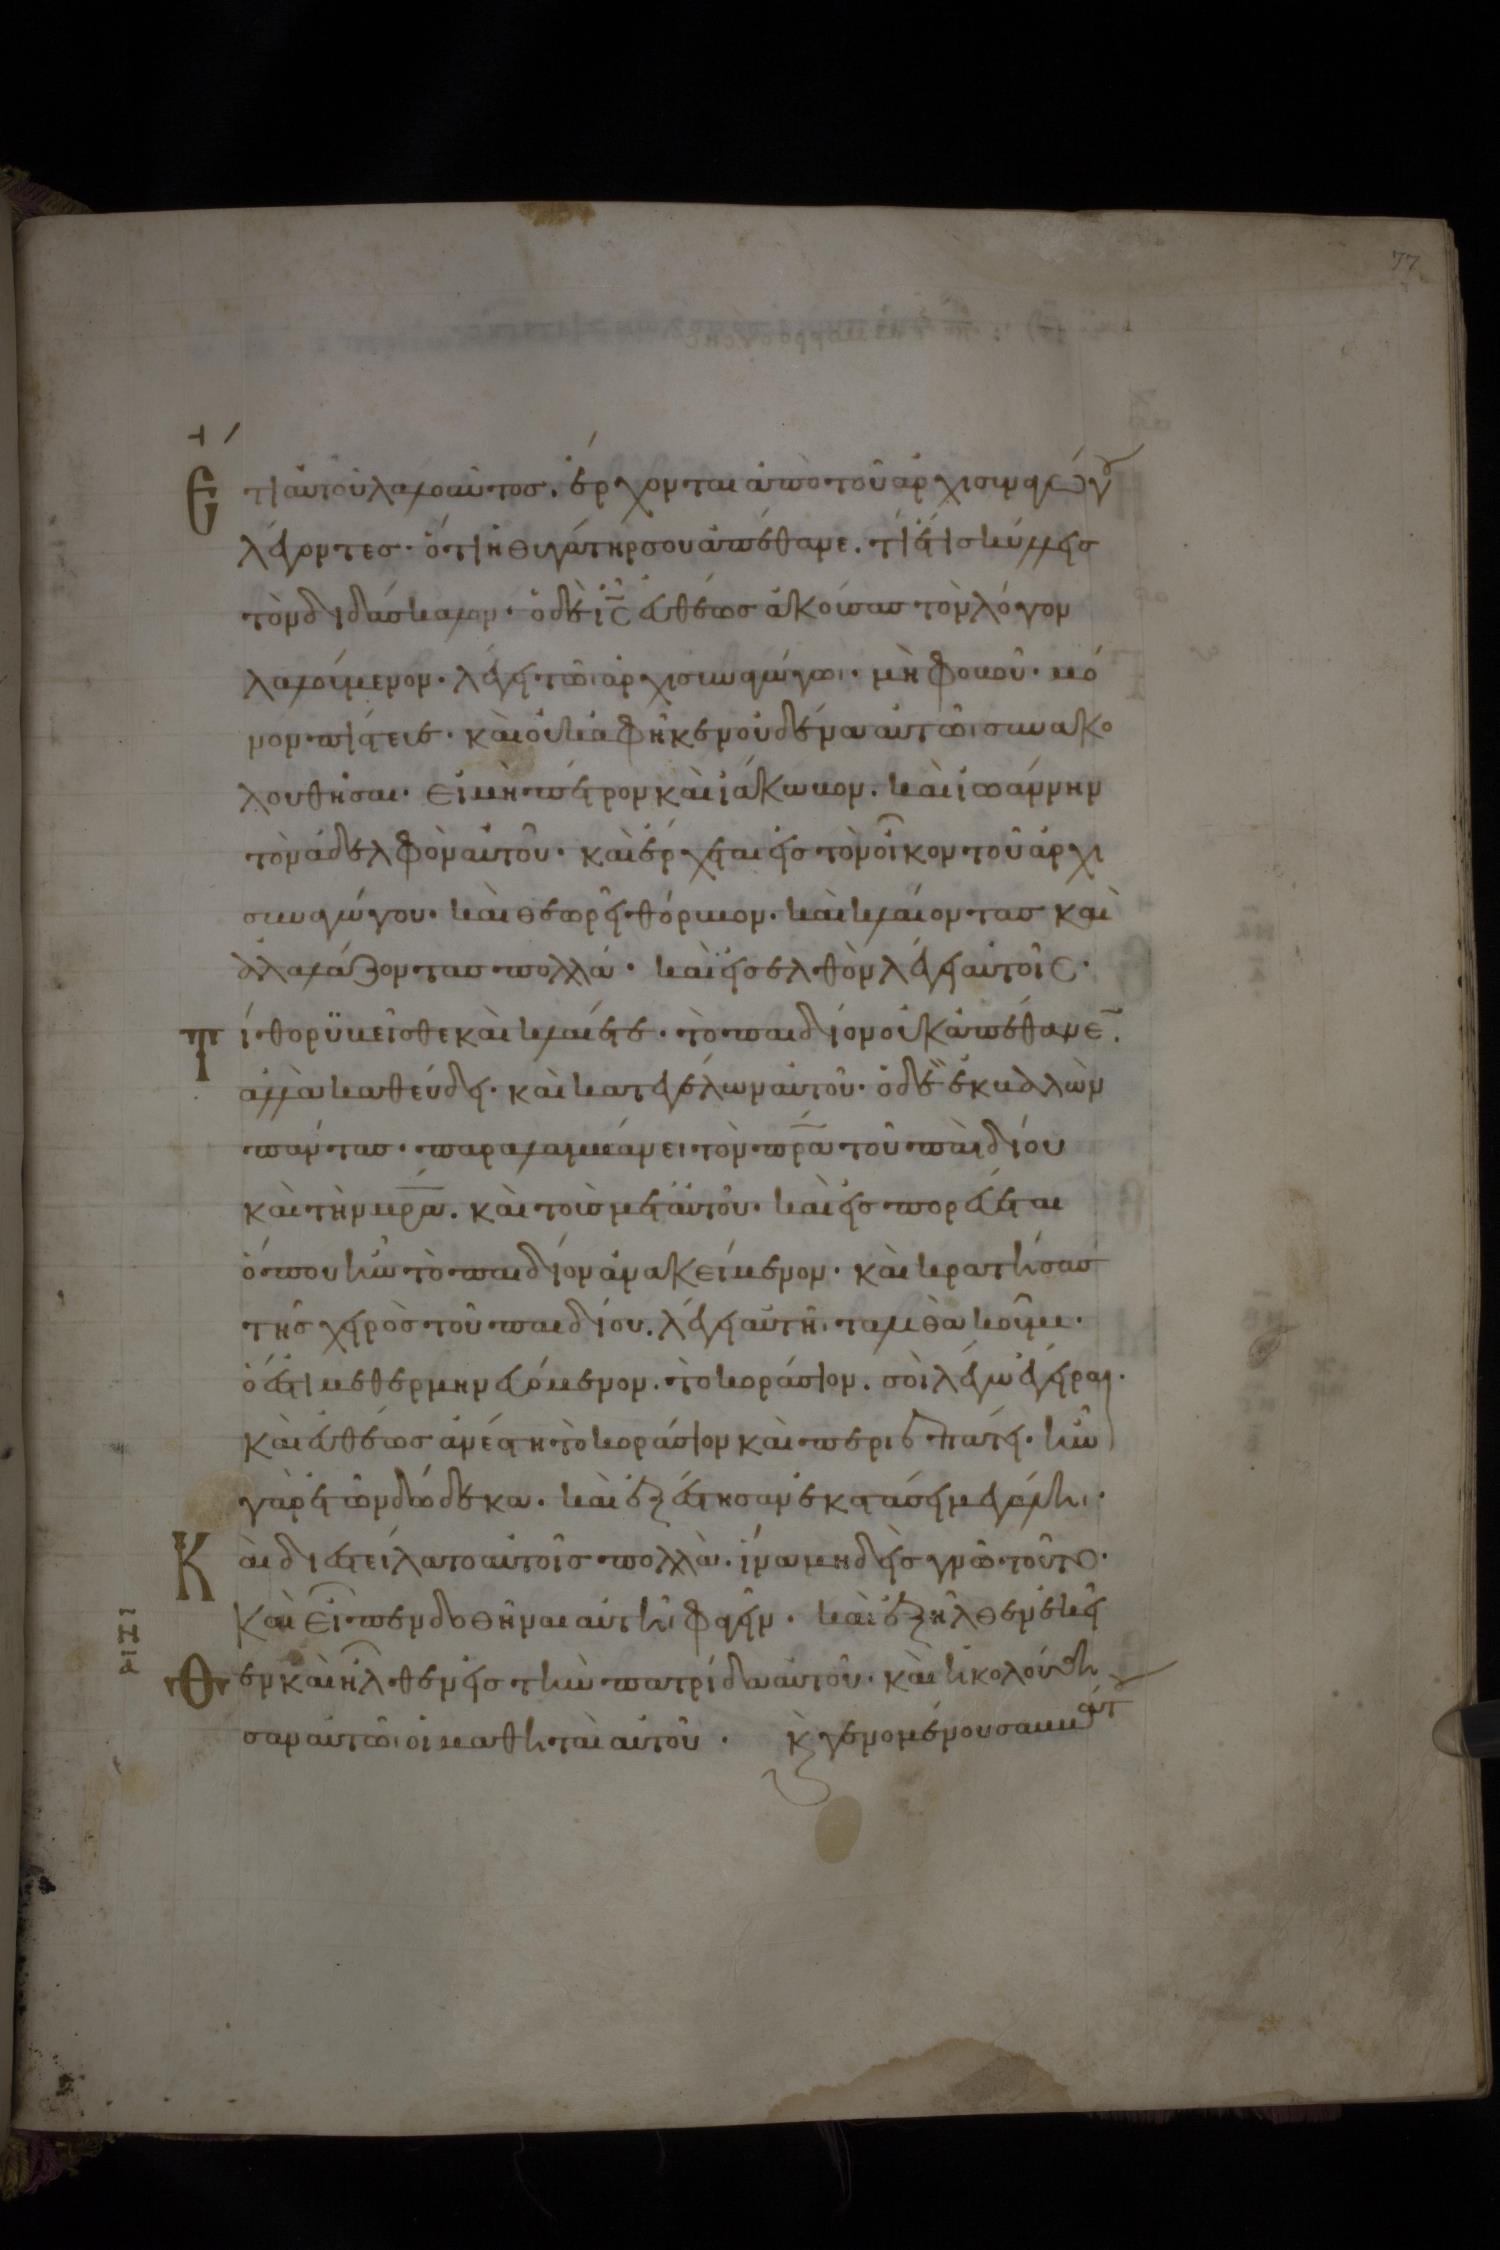 77
Ἔτι αὐτοῦ λαλοῦντος. ἔρχονται ἀπὸ τοῦ ἀρχισυναγώγου
λέγοντες· ὅτι ἡ θυγάτηρ σου ἀπέθανε. τί ἔτι σκύλλεις
τὸν διδάσκαλον· ὁ δὲ ις εὐθέως ἀκούσας τὸν λόγον
λαλούμενον· λέγει τῶι ἀρχισυναγώγωι· μὴ φοβοῦ· μό
νον πίστευε· καὶ οὐκ ἀφῆκεν οὐδένα αὐτῶι συνακο
λουθῆσαι· εἰ μὴ πέτρον καὶ ἰάκωβον. καὶ ἰωάννην
τὸν ἀδελφὸν αὐτοῦ· καὶ ἔρχεται εἰς τὸν οἶκον τοῦ ἀρχι
συναγώγου· καὶ θεωρεῖ θόρυβον· καὶ κλαίοντας καὶ
ἀλαλάζοντας πολλά· καὶ εἰσελθὼν λέγει αὐτοῖς·
Τί θορυβεῖσθε καὶ κλαίετε· τὸ παιδίον οὐκ ἀπέθανε.
ἀλλὰ καθεύδει· καὶ κατεγέλων αὐτοῦ· ὁ δὲ ἐκβαλὼν
πάντας· παραλαμβάνει τὸν πρα τοῦ παιδίου
καὶ τὴν μρα. καὶ τοὺς μετ αὐτοῦ· καὶ εἰσπορεύεται
ὅπου ἦν τὸ παιδίον ἀνακείμενον· καὶ κρατήσας
τῆς χειρὸς τοῦ παιδίου. λέγει αὐτῆι ταλιθὰ κοῦμι·
ὅ ἐστι μεθερμηνευόμενον. τὸ κοράσιον. σοὶ λέγω ἔγειραι·
καὶ εὐθέως ἀνέστη τὸ κοράσιον καὶ περιεπάτει· ἦν
γὰρ ἐτῶν δώδεκα. καὶ ἐξέστησαν ἐκστάσει μεγάλη·
Καὶ διεστείλατο αὐτοῖς πολλὰ. ἵνα μηδεὶς γνῶ τοῦτο·
καὶ εἶπεν δοθῆναι αὐτῆι φαγεῖν· καὶ ἐξῆλθεν ἐκεῖ
θεν καὶ ἦλθεν εἰς τὴν πατρίδα αὐτοῦ· καὶ ἠκολούθη
σαν αὐτῶι οἱ μαθηταὶ αὐτοῦ· κ γενομένου σαββάτου